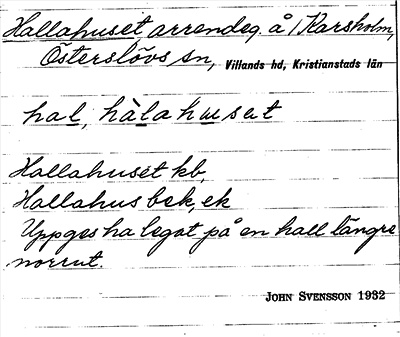 Hallahuset, arrendeg. å 1 Karsholm,
Österslövs sn, Villands hd, Kristianstads län
hal, hàlahuset
Hallahuset kb,
Hallahus bek, ek
Uppges ha legat på en hall längre
norrut.
JOHN SVENSSON 1932